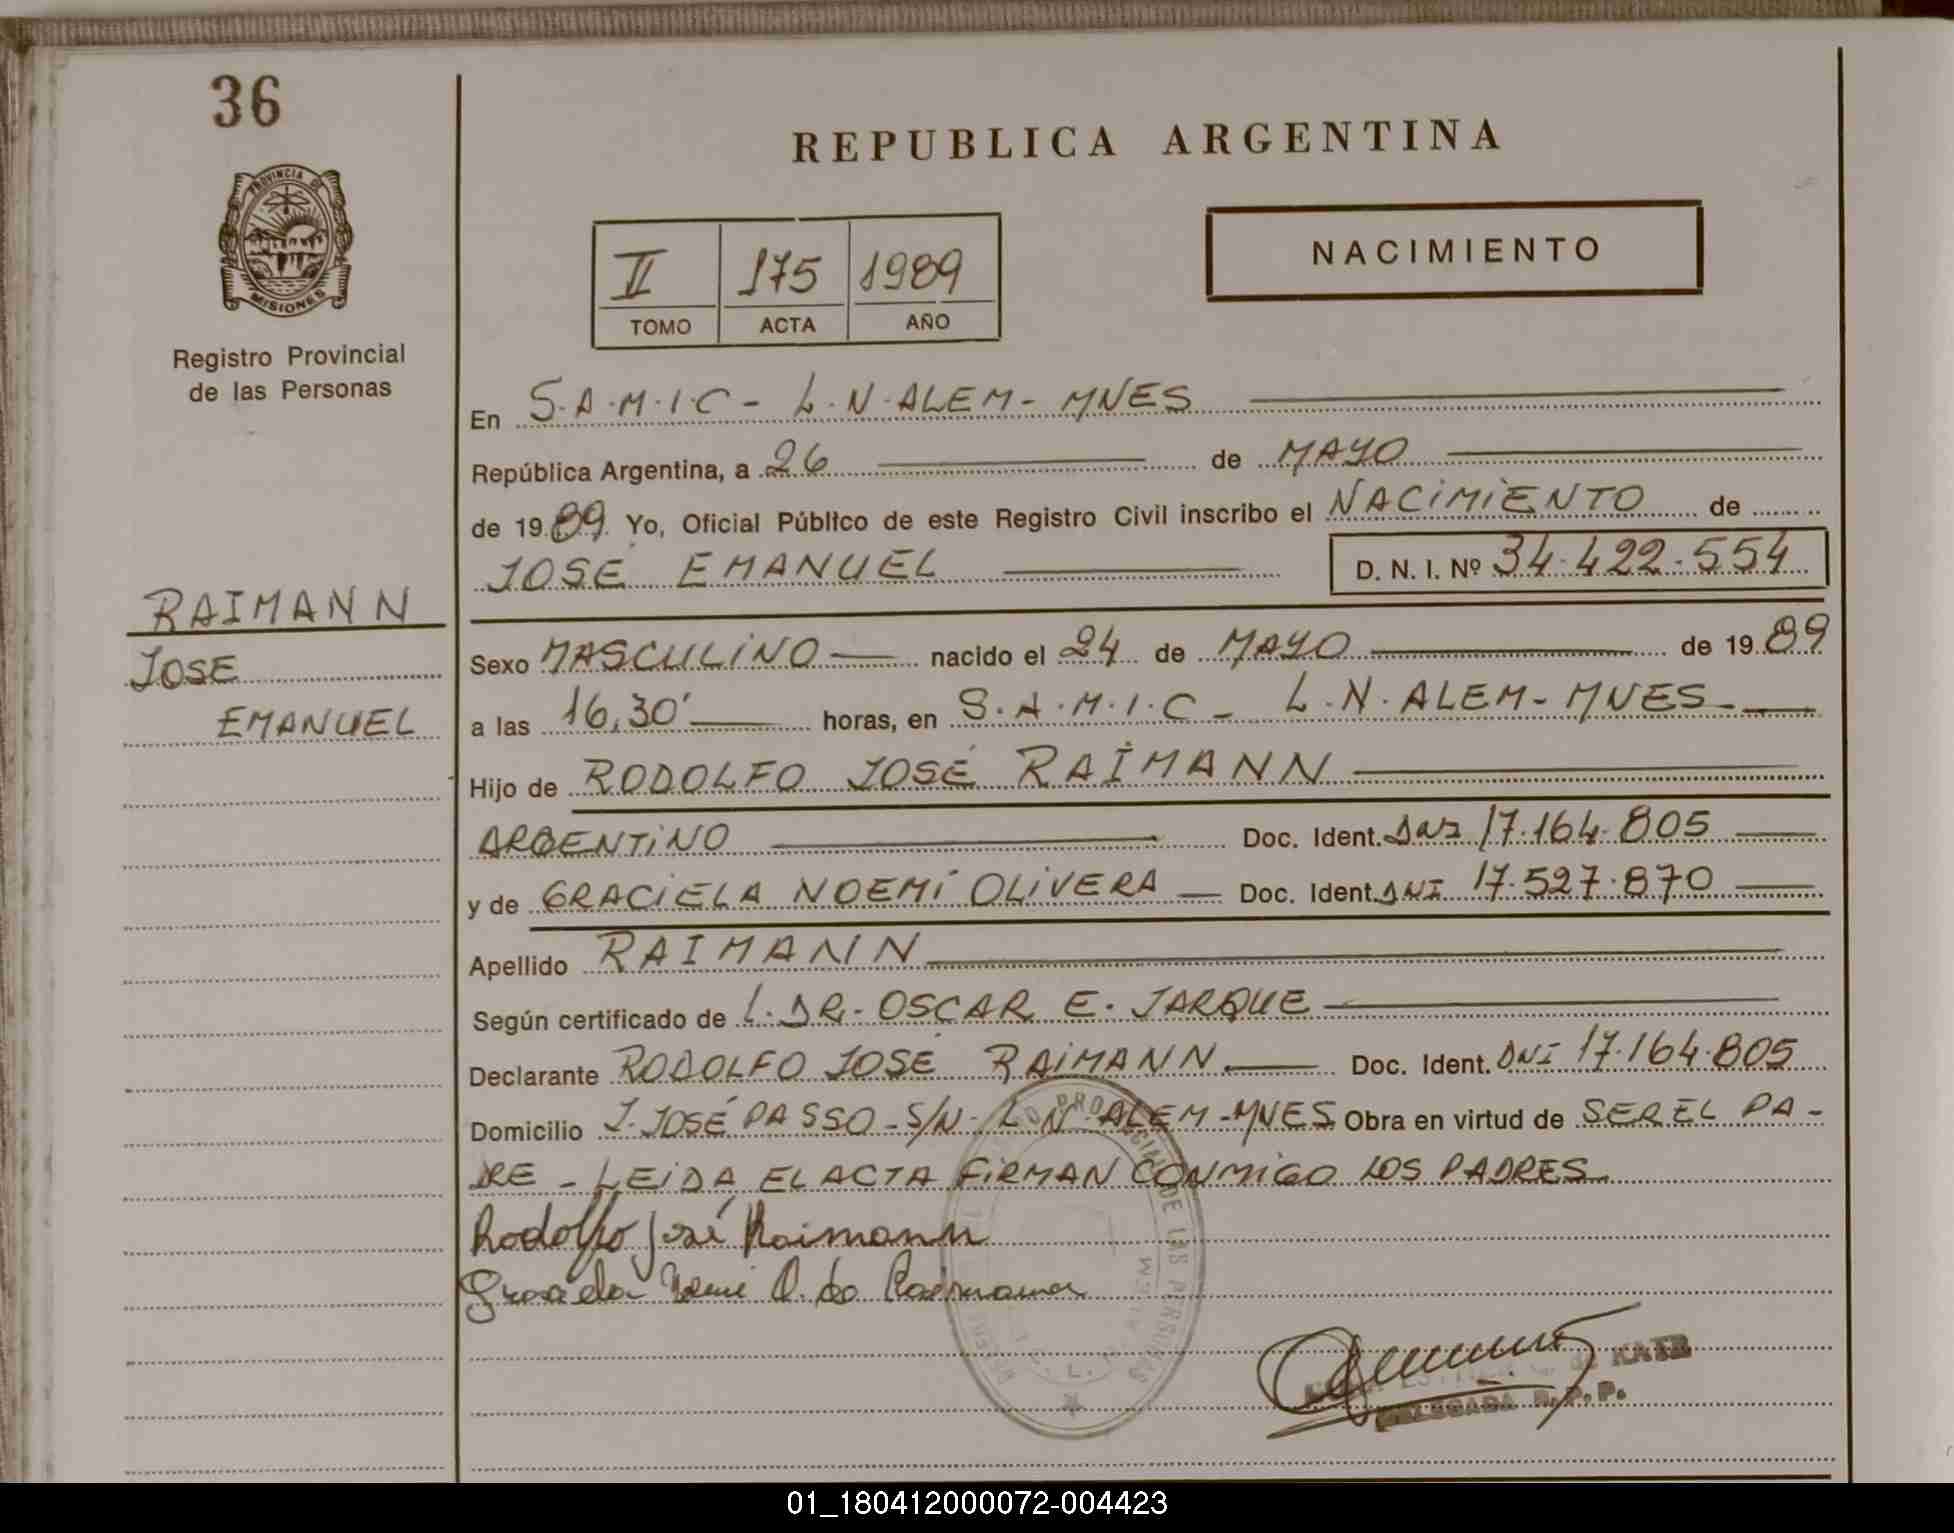 36
PROVINCIA DE
MISIONES
Registro Provincial
de las Personas
RAIMANN
JOSE
EMANUEL
REPUBLICA ARGENTINA
II 175 1989
TOMO ACTA AÑO
NACIMIENTO
En S.A.M.I.C - L.N.ALEM - MNES
República Argentina, a 26 de MAYO
de 19 89 Yo, Oficial Público de este Registro Civil inscribo el NACIMIENTO de
JOSÉ EMANUEL D. N. I. Nº 34.422.554
Sexo MASCULINO nacido el 24 de MAYO de 19 89
a las 16,30' horas, en S.A.M.I.C - L.N.ALEM - MNES
Hijo de RODOLFO JOSÉ RAIMANN
ARGENTINO Doc. Ident. DNI 17.164.805
y de GRACIELA NOEMÍ OLIVERA Doc. Ident. DNI 17.527.870
Apellido RAIMANN
Según certificado de L. DR. OSCAR E. JARQUE
Declarante RODOLFO JOSÉ RAIMANN Doc. Ident. DNI 17.164.805
Domicilio J. JOSÉ PASSO - S/N - L.N ALEM - MNES Obra en virtud de SER EL PA-
DRE - LEIDA EL ACTA FIRMAN CONMIGO LOS PADRES
Rodolfo José Raimann
Graciela Noemi O. de Raimann
R. P. P.
01_180412000072-004423